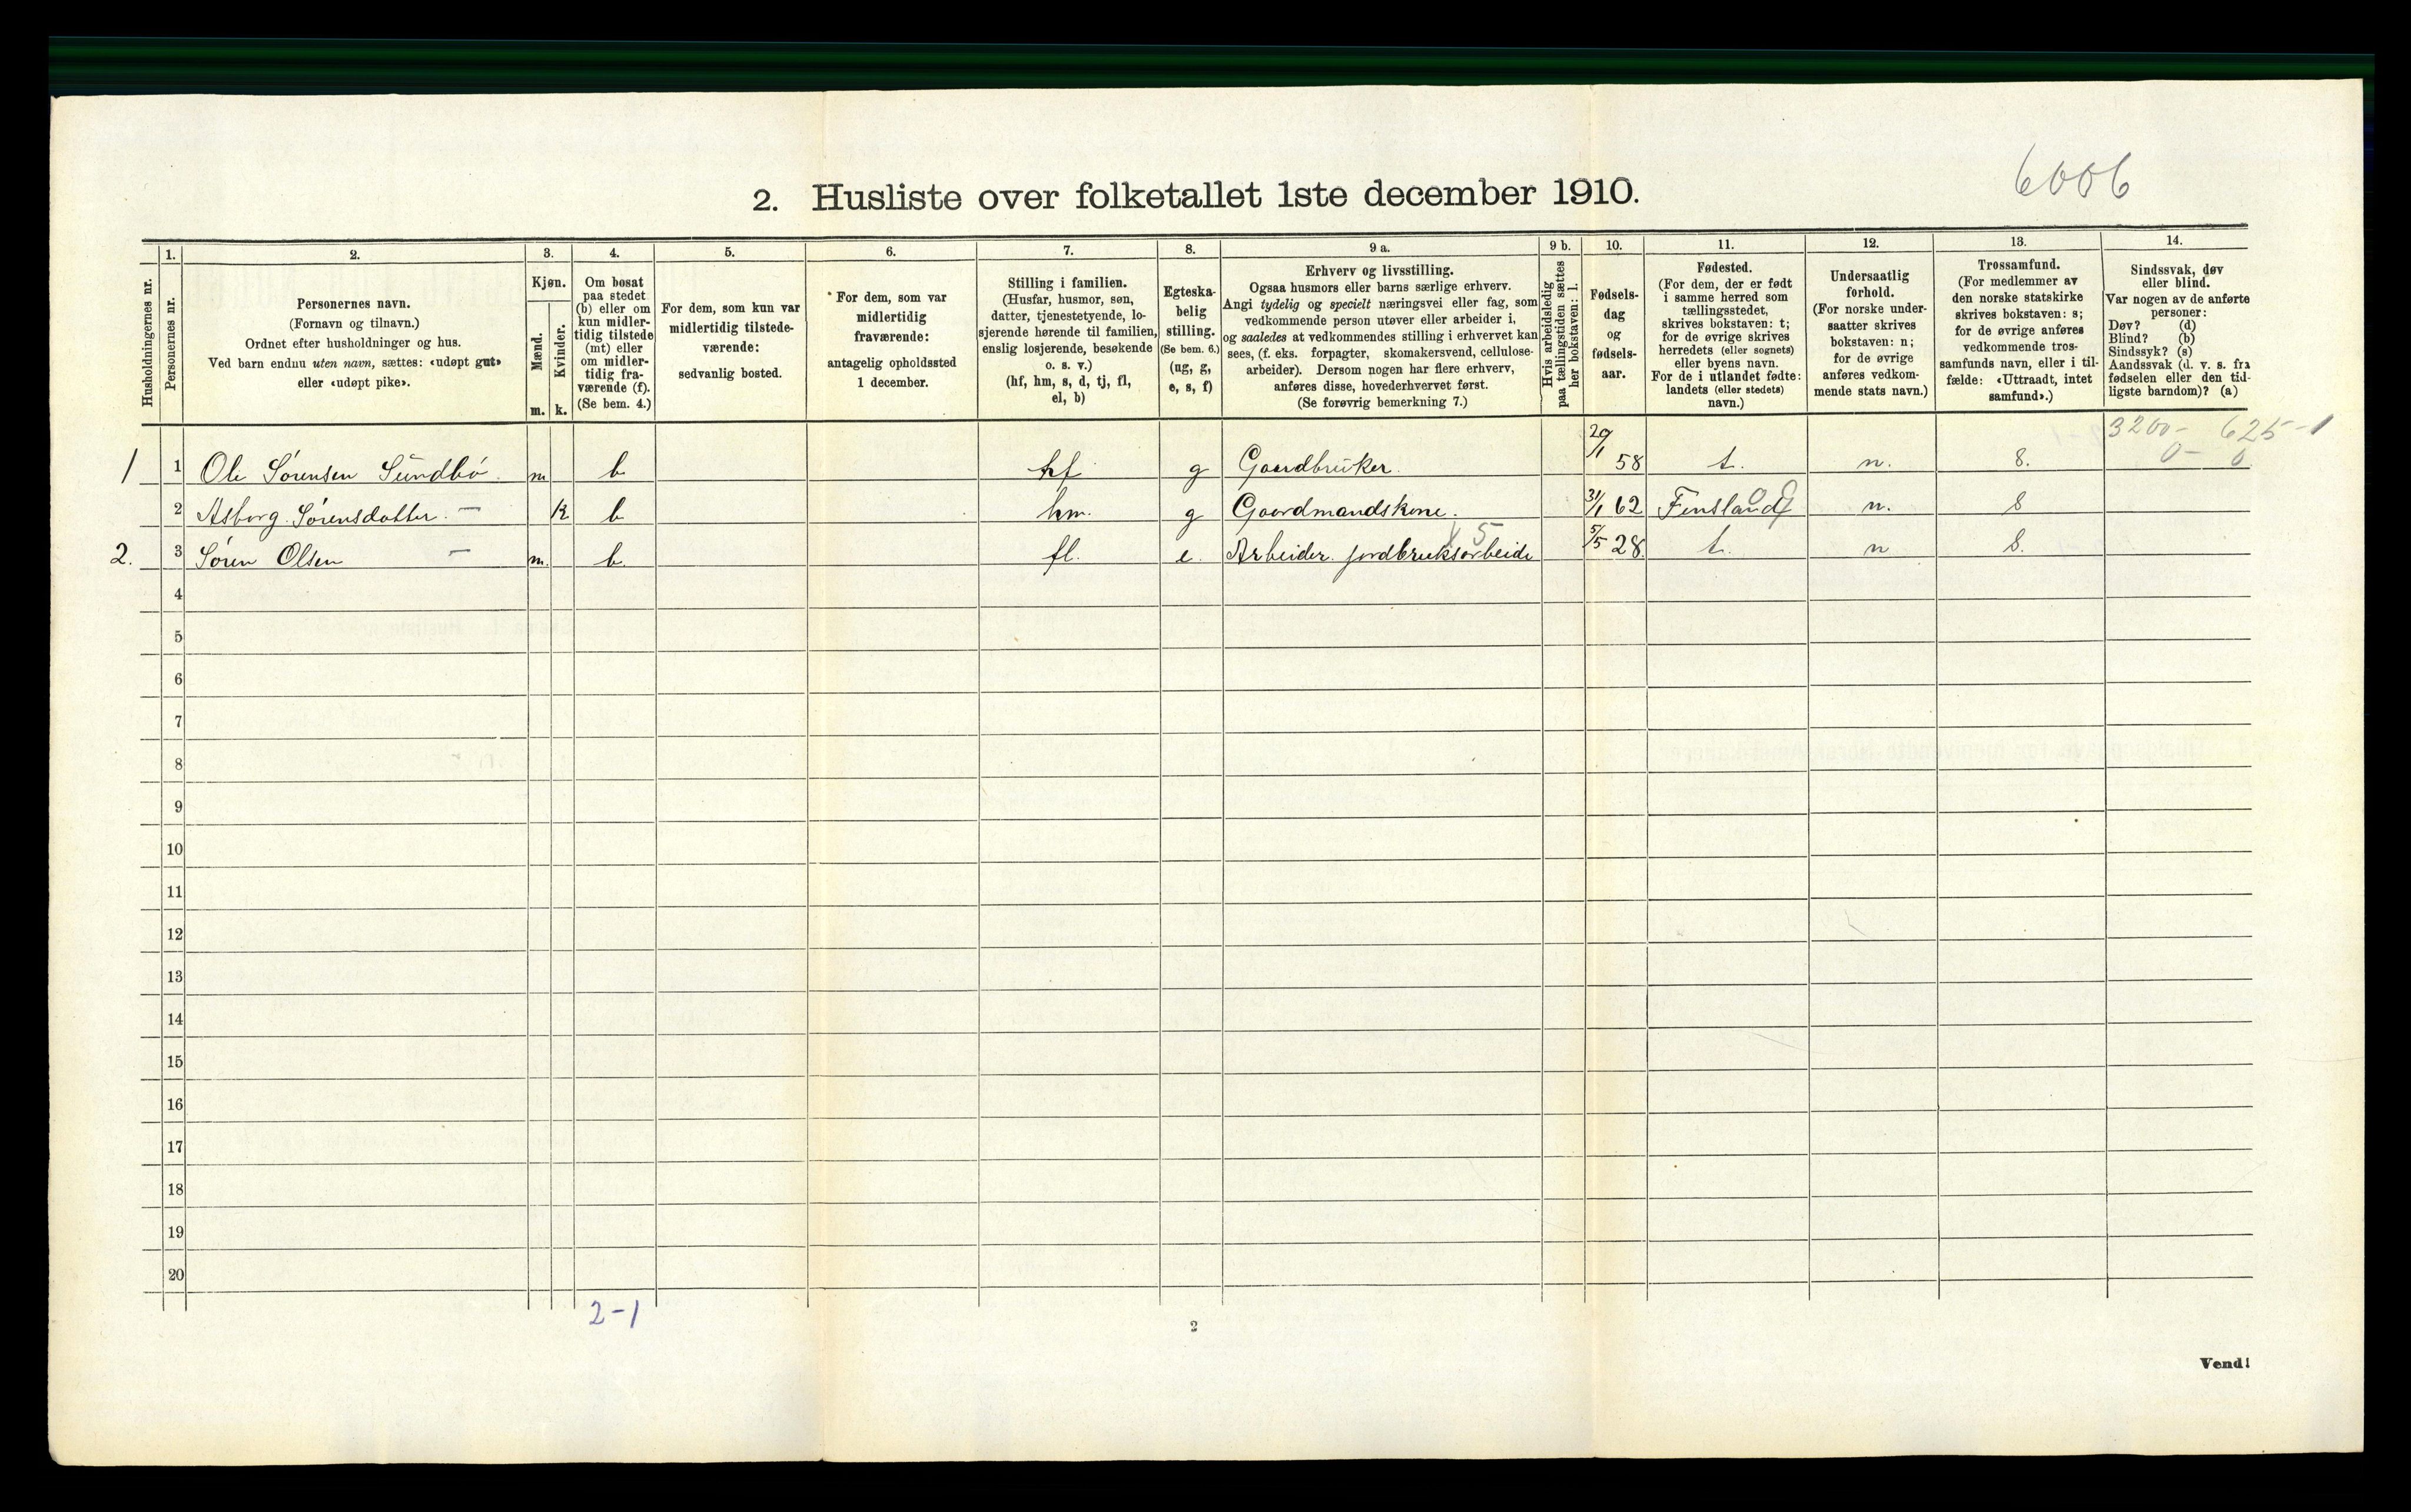 6006
2. Husliste over folketallet 1ste december 1910.
Husholdningernes nr.
1.
Personernes nr.
2.
Personernes navn.
(Fornavn og tilnavn.)
Ordnet efter husholdninger og hus.
Ved barn endnu uten navn, sættes: «udøpt gut»
eller «udøpt pike».
3.
Kjøn.
Mænd.
Kvinder.
m. k.
4.
Om bosat
paa stedet
(b) eller om
kun midler-
tidig tilstede
(mt) eller
om midler-
tidig fra-
værende (f).
(Se bem. 4.)
5.
For dem, som kun var
midlertidig tilstede-
værende:
sedvanlig bosted.
6.
For dem, som var
midlertidig
fraværende:
antagelig opholdssted
1 december.
7.
Stilling i familien.
(Husfar, husmor, søn,
datter, tjenestetyende, lo-
sjerende hørende til familien,
enslig losjerende, besøkende
o. s. v.)
(hf, hm, s, d, tj, fl,
el, b)
8.
Egteska-
belig
stilling.
(Se bem. 6.)
(ug, g,
e, s, f)
9 a.
Erhverv og livsstilling.
Ogsaa husmors eller barns særlige erhverv.
Angi tydelig og specielt næringsvei eller fag, som
vedkommende person utøver eller arbeider i,
og saaledes at vedkommendes stilling i erhvervet kan
sees, (f. eks. forpagter, skomakersvend, cellulose-
arbeider). Dersom nogen har flere erhverv,
anføres disse, hovederhvervet først.
(Se forøvrig bemerkning 7.)
9 b.
Hvis arbeidsledig
paa tællingstiden sættes
her bokstaven: l.
10.
Fødsels-
dag
og
fødsels-
aar.
11.
Fødested.
(For dem, der er født
i samme herred som
tællingsstedet,
skrives bokstaven: t;
for de øvrige skrives
herredets (eller sognets)
eller byens navn.
For de i utlandet fødte:
landets (eller stedets)
navn.)
12.
Undersaatlig
forhold.
(For norske under-
saatter skrives
bokstaven: n;
for de øvrige
anføres vedkom-
mende stats navn.)
13.
Trossamfund.
(For medlemmer av
den norske statskirke
skrives bokstaven: s;
for de øvrige anføres
vedkommende tros-
samfunds navn, eller i til-
fælde: «Uttraadt, intet
samfund».)
14.
Sindssvak, døv
eller blind.
Var nogen av de anførte
personer:
Døv? (d)
Blind? (b)
Sindssyk? (s)
Aandssvak (d. v. s. fra
fødselen eller den tid-
ligste barndom)? (a)
3200- 625-1
0- 0
1 1 Ole Sørensen Sundbö. m b hf g Gaardbruker. 20/1 58 t. n. S.
2 Asborg Sørensdatter. — k b hm. g Gaardmandskone. 31/1 62 Finsland n. S
X 5
2. 3 Sören Olsen — m. b. fl. e. Arbeider jordbruksarbeide 5/5 28 t. n S.
4
5
6
7
8
9
10
11
12
13
14
15
16
17
18
19
20
2-1
2
Vend!